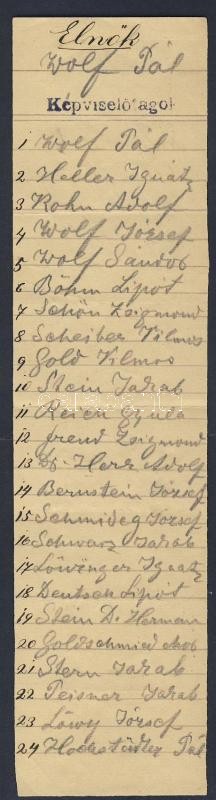 Elnök
Wolf Pál
Képviselőtagok
1 Wolf Pál
2 Heller Ignátz
3 Kohn Adolf
4 Wolf József
5 Wolf Sandor
6 Böhm Lipot
7 Schön Zsigmond
8 Scheiber Vilmos
9 Gold Vilmos
10 Stein Jakab
11 Reich Gyula
12 Freud Zsigmond
13 Dr Herr Adolf
14 Bernstein József
15 Schmideg József
16 Schwarz Jakab
17 Löwinger Ignatz
18 Deutsch Lipot
19 Stein D. Herman
20 Goldschmied
21 Stern Jakab
22 Peisner Jakab
23 Löwy József
24 Hochstädter Pál